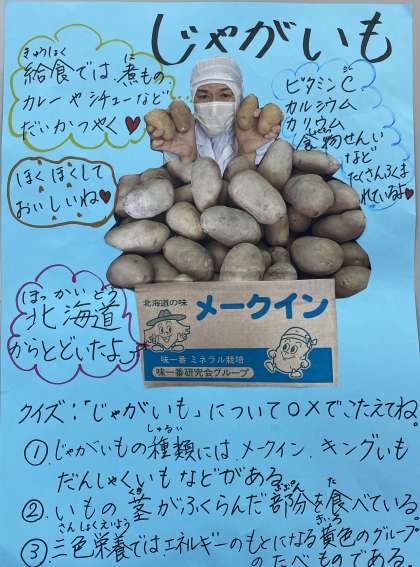 じゃがいも
きゅうしょく に
給食では、煮もの
カレーやシチューなど
だいかつやく♥
ほくほくして
おいしいね♥
ほっかいどう
北海道
からとどいたよ
ビタミンC
カルシウム
カリウム
食物せんい
など
たくさんふくま
れているよ♥
北海道の味
メークイン
味一番 ミネラル栽培
味一番研究会グループ
クイズ:「じゃがいも」について○×でこたえてね。
しゅるい
①じゃがいもの種類には、メークイン、キングいも
だんしゃくいもなどがある。
くき ぶぶん た
②いもの茎がふくらんだ部分を食べている。
さんしょくえいよう きいろ
③三色栄養ではエネルギーのもとになる黄色のグループ
のたべものである。